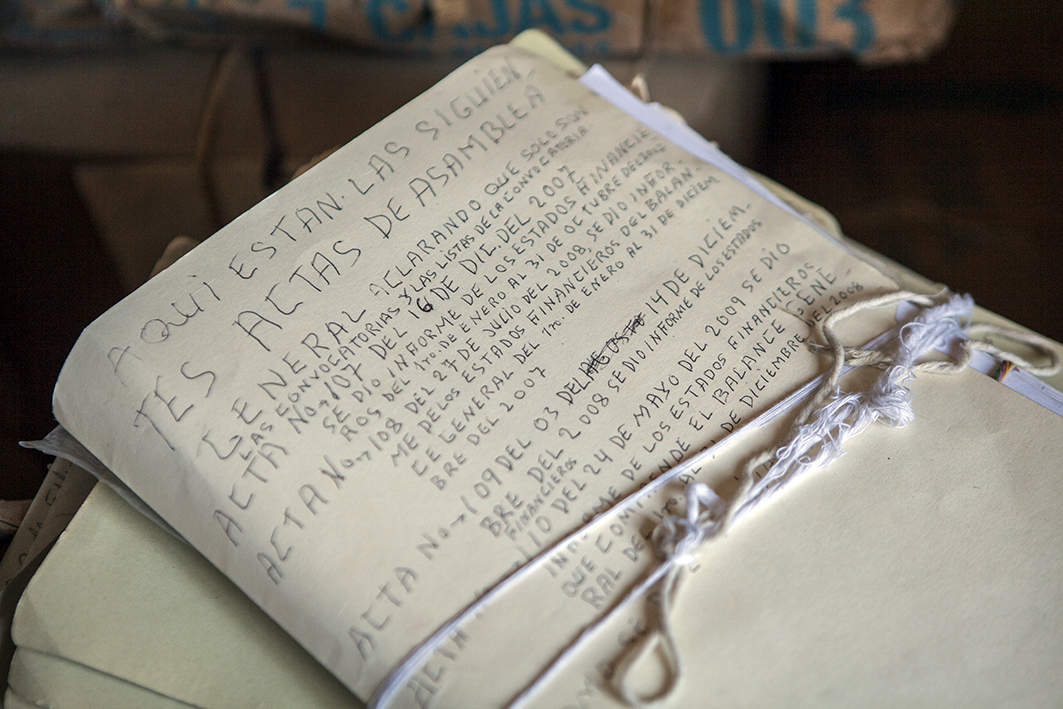 CAJAS 003
AQUI ESTAN LAS SIGUIEN
TES ACTAS DE ASAMBLEA
GENERAL ACLARANDO QUE SOLO SON
LAS CONVOCATORIAS Y LAS LISTAS DE LA CONVOCATORIA
ACTA No-107 DEL 16 DE DIC. DEL 2007
SE DIO INFORME DE LOS ESTADOS FINANCIE
ROS DEL 1ro. DE ENERO AL 31 DE OCTUBRE DEL
ACTA No-108 DEL 27 DE JULIO DEL 2008, SE DIO INFOR.
ME DE LOS ESTADOS FINANCIEROS DEL BALAN.
CE GENERAL DEL 1ro. DE ENERO AL 31 DE DICIEM
BRE DEL 2007
ACTA No-109 DEL 03 DEL 14 DE DICIEM.
BRE DEL 2008 SE DIO INFORME DE LOS ESTADOS
FINANCIEROS
ACTA 110 DEL 24 DE MAYO DEL 2009 SE DIO
DE LOS ESTADOS FINANCIEROS
QUE EL BALANCE GENE
RAL DE AL DE DICIEMBRE DEL 2008